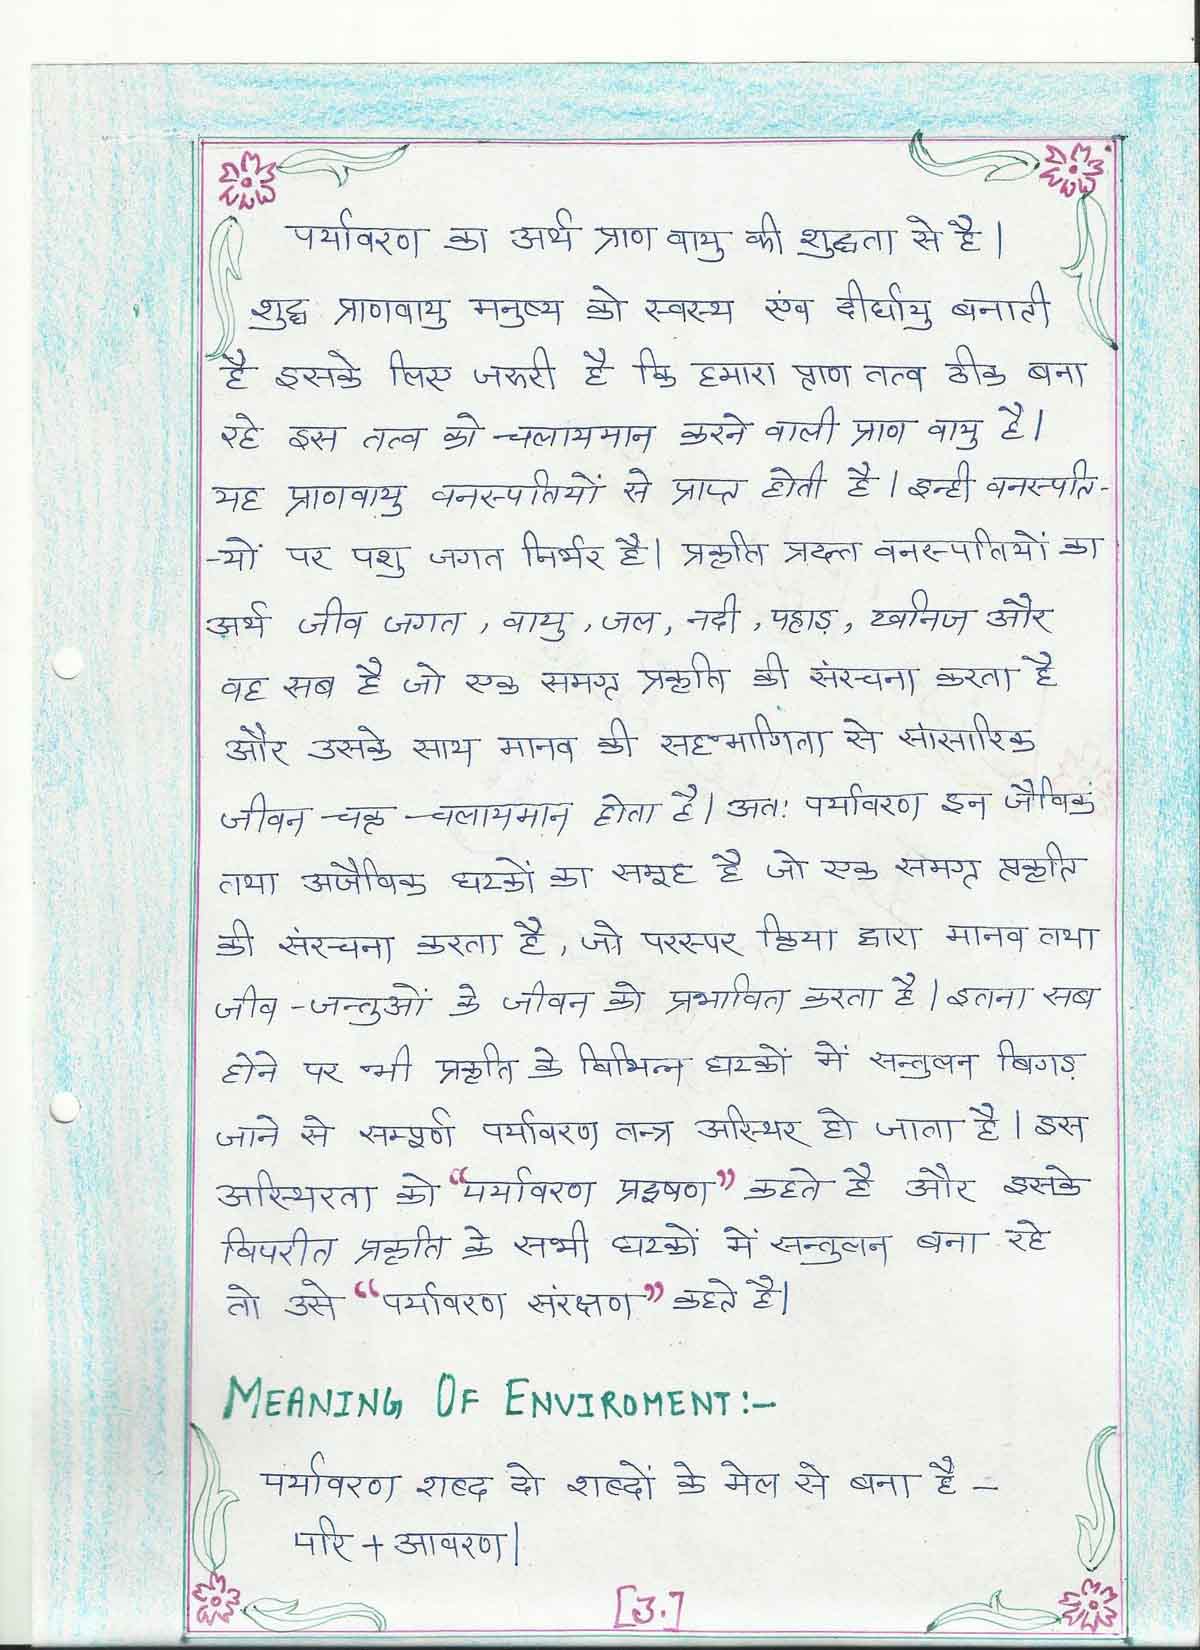 पर्यावरण का अर्थ प्राण वायु की शुद्धता से है।
शुद्ध प्राणवायु मनुष्य को स्वस्थ एंव दीर्घायु बनाती
है इसके लिए जरुरी है कि हमारा प्राण तत्व ठीक बना
रहे इस तत्व को चलायमान करने वाली प्राण वायु है।
यह प्राणवायु वनस्पतियों से प्राप्त होती है। इन्ही वनस्पति-
-यों पर पशु जगत निर्भर है। प्रकृति प्रदत्त वनस्पतियों का
अर्थ जीव जगत, वायु, जल, नदी, पहाड़, खनिज और
वह सब है जो एक समग्र प्रकृति की संरचना करता है
और उसके साथ मानव की सहभागिता से सांसारिक
जीवन चक्र चलायमान होता है। अतः पर्यावरण इन जैविक
तथा अजैविक घटकों का समूह है जो एक समग्र प्रकृति
की संरचना करता है, जो परस्पर क्रिया द्वारा मानव तथा
जीव-जन्तुओं के जीवन को प्रभावित करता है। इतना सब
होने पर भी प्रकृति के विभिन्न घटकों में सन्तुलन बिगड़
जाने से सम्पूर्ण पर्यावरण तन्त्र अस्थिर हो जाता है। इस
अस्थिरता को "पर्यावरण प्रदूषण" कहते है और इसके
विपरीत प्रकृति के सभी घटकों में सन्तुलन बना रहे
तो उसे "पर्यावरण संरक्षण" कहते है।
MEANING OF ENVIROMENT:-
पर्यावरण शब्द दो शब्दों के मेल से बना है -
परि + आवरण।
[3.]